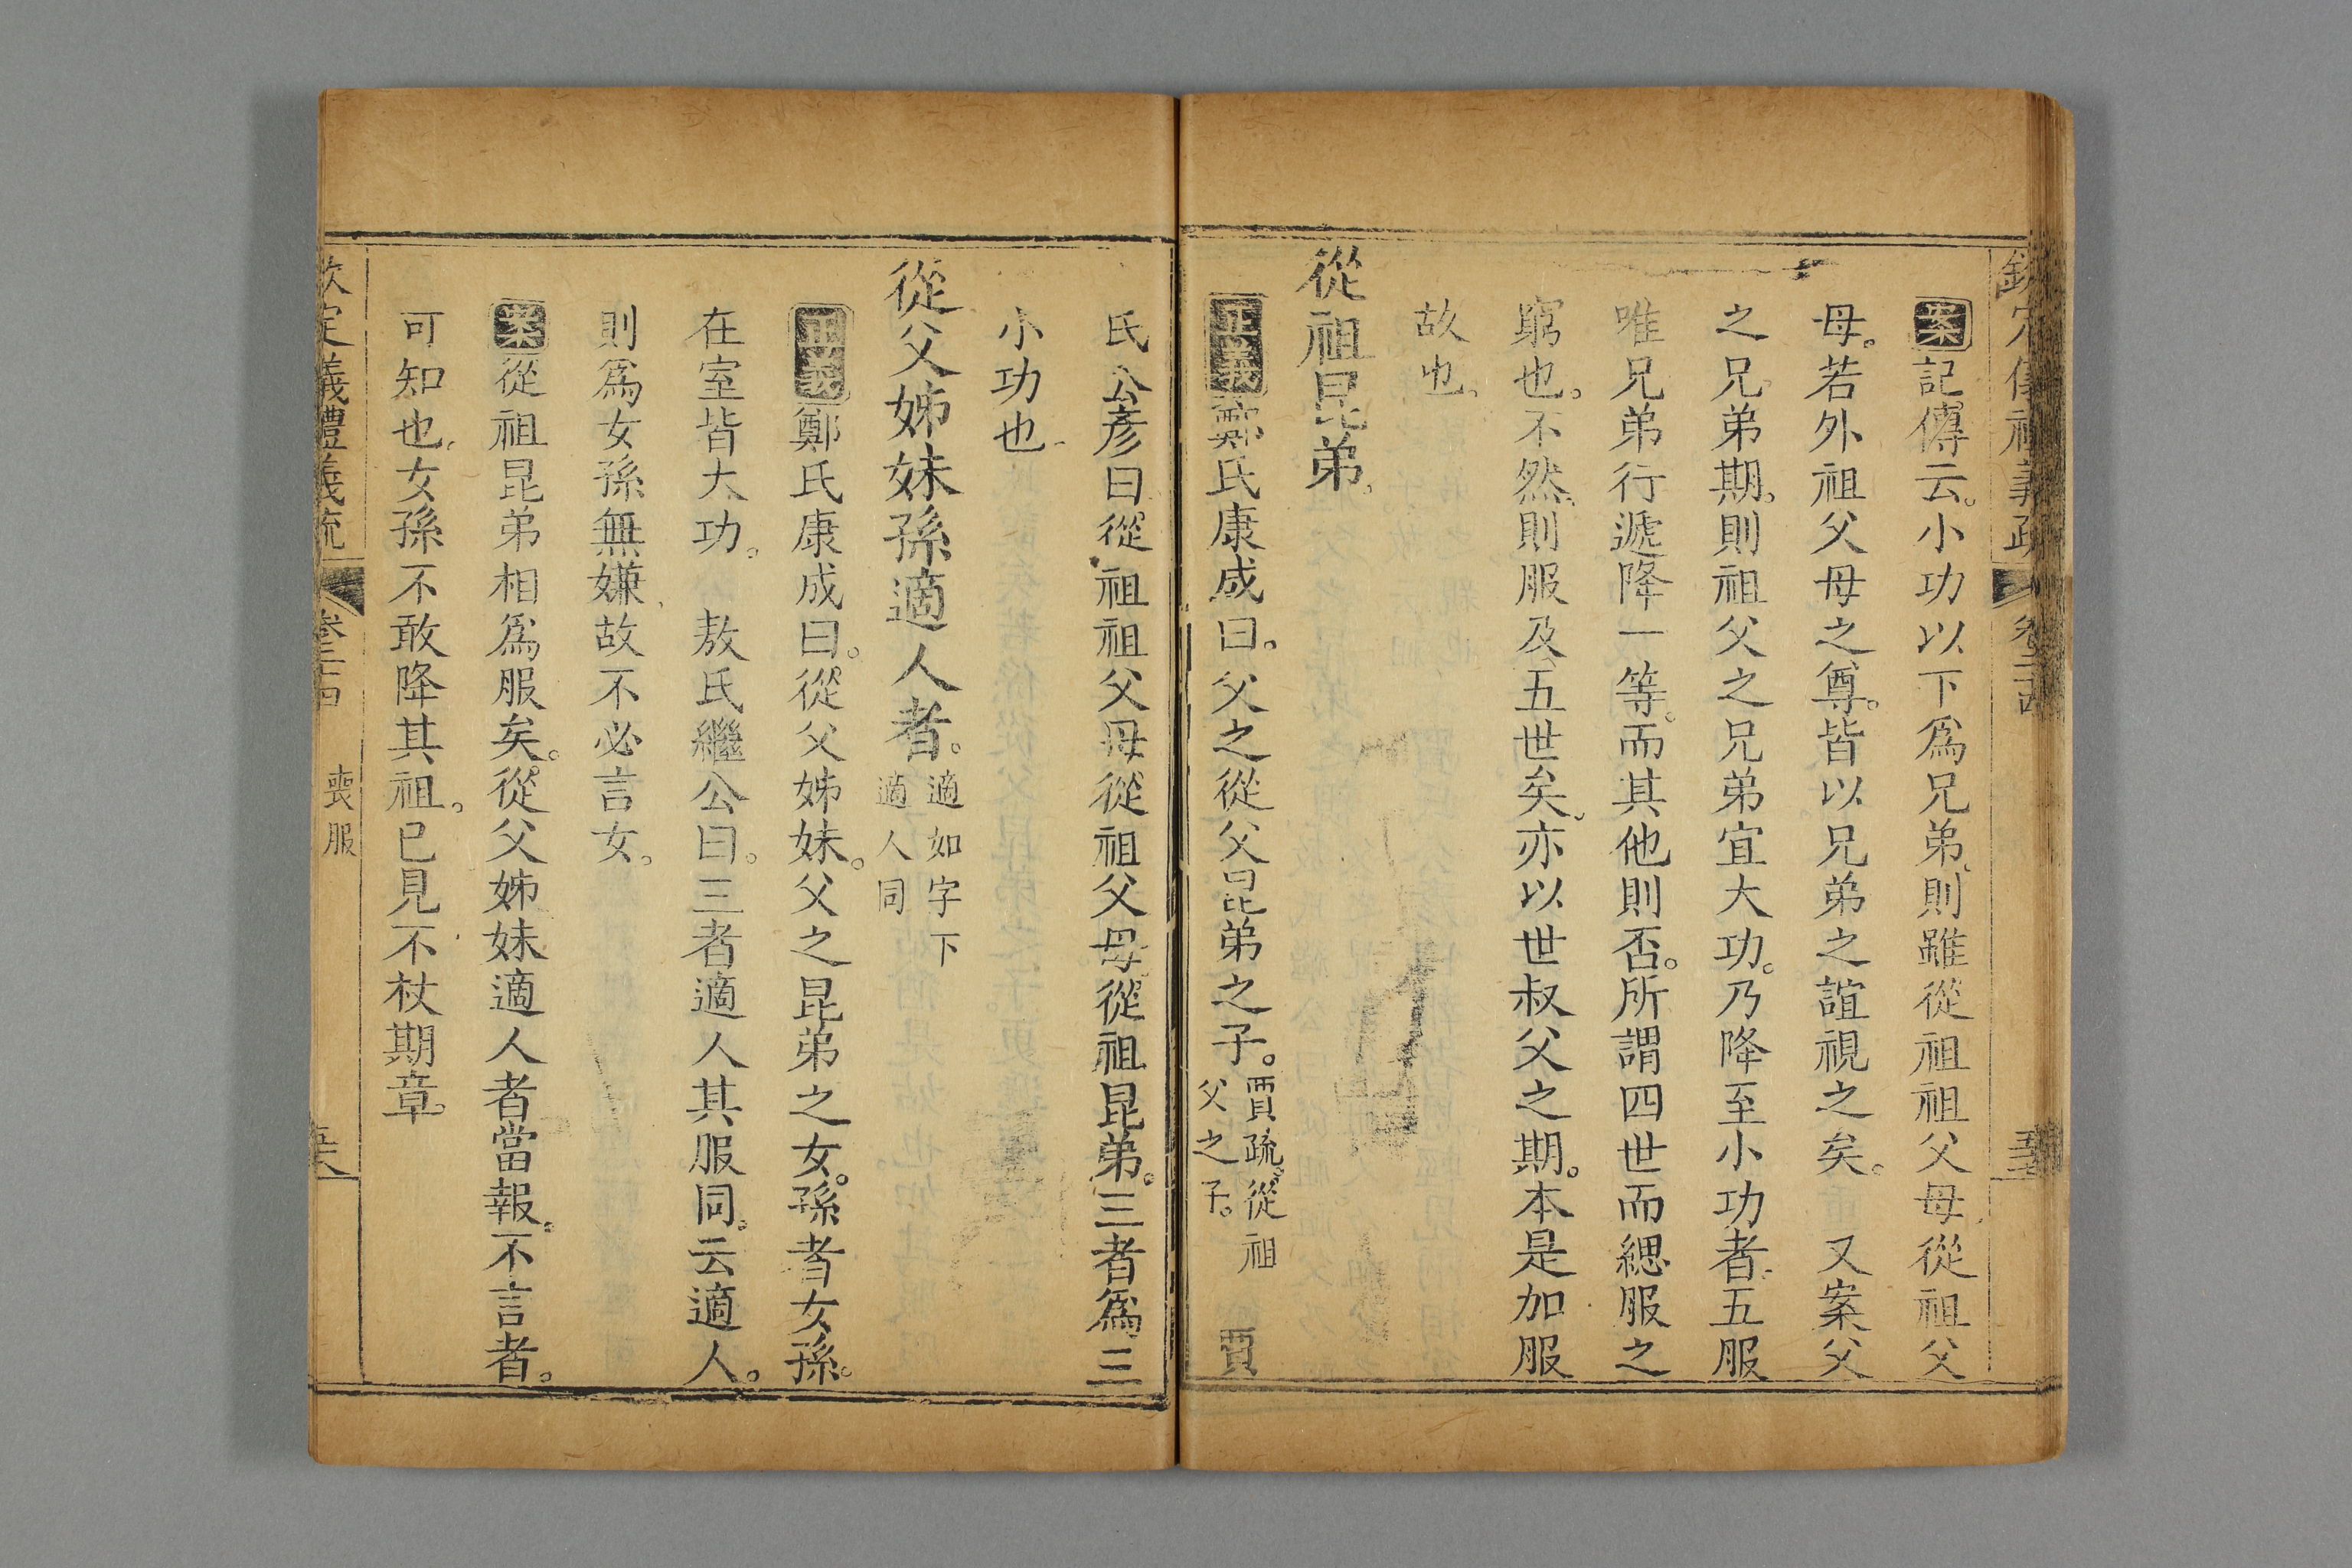 欽定儀禮義疏 卷二十四
案記傳云。小功以下爲兄弟。則雖從祖祖父母從祖父
母。若外祖父母之尊。皆以兄弟之誼視之矣。 又案父
之兄弟期。則祖父之兄弟宜大功。乃降至小功者。五服
唯兄弟行遞降一等。而其他則否。所謂四世而緦服之
窮也。不然。則服及五世矣。亦以世叔父之期。本是加服
故也。
從祖昆弟。
正義鄭氏康成曰。父之從父昆弟之子。賈疏。從祖父之子。 賈
氏公彥曰。從祖祖父母從祖父母從祖昆弟。三者爲三
小功也。
從父姊妹孫適人者。適如字下適人同
正義鄭氏康成曰。從父姊妹。父之昆弟之女。孫者女孫。
在室皆大功。 敖氏繼公曰。三者適人其服同。云適人。
則爲女孫無嫌。故不必言女。
案從祖昆弟相爲服矣。從父姊妹適人者當報。不言者。
可知也。女孫不敢降其祖。已見不杖期章。
欽定儀禮義疏 卷二十四 喪服